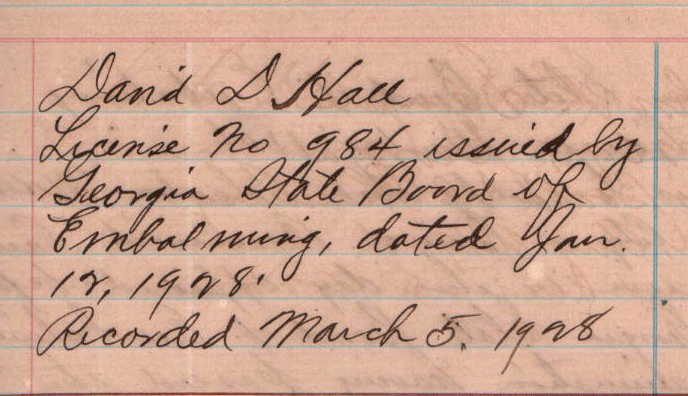 David D Hall
License No 984 issued by
Georgia State Board of
Embalming, dated Jan.
12, 1928.
Recorded March 5. 1928